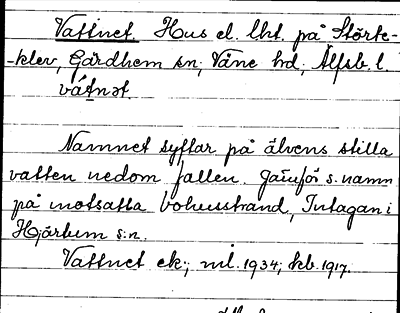 Vattnet. Hus el. lht. på Störte-
-klev, Gärdhem sn; Väne hd; Älfsb. l.
vátnət.
Namnet syftar på älvens stilla
vatten nedom fallen. Jämför s. namn
på motsatta bohusstrand, Intagan i
Hjärtum s:n.
Vattnet ek.; ml. 1934; kb. 1917.